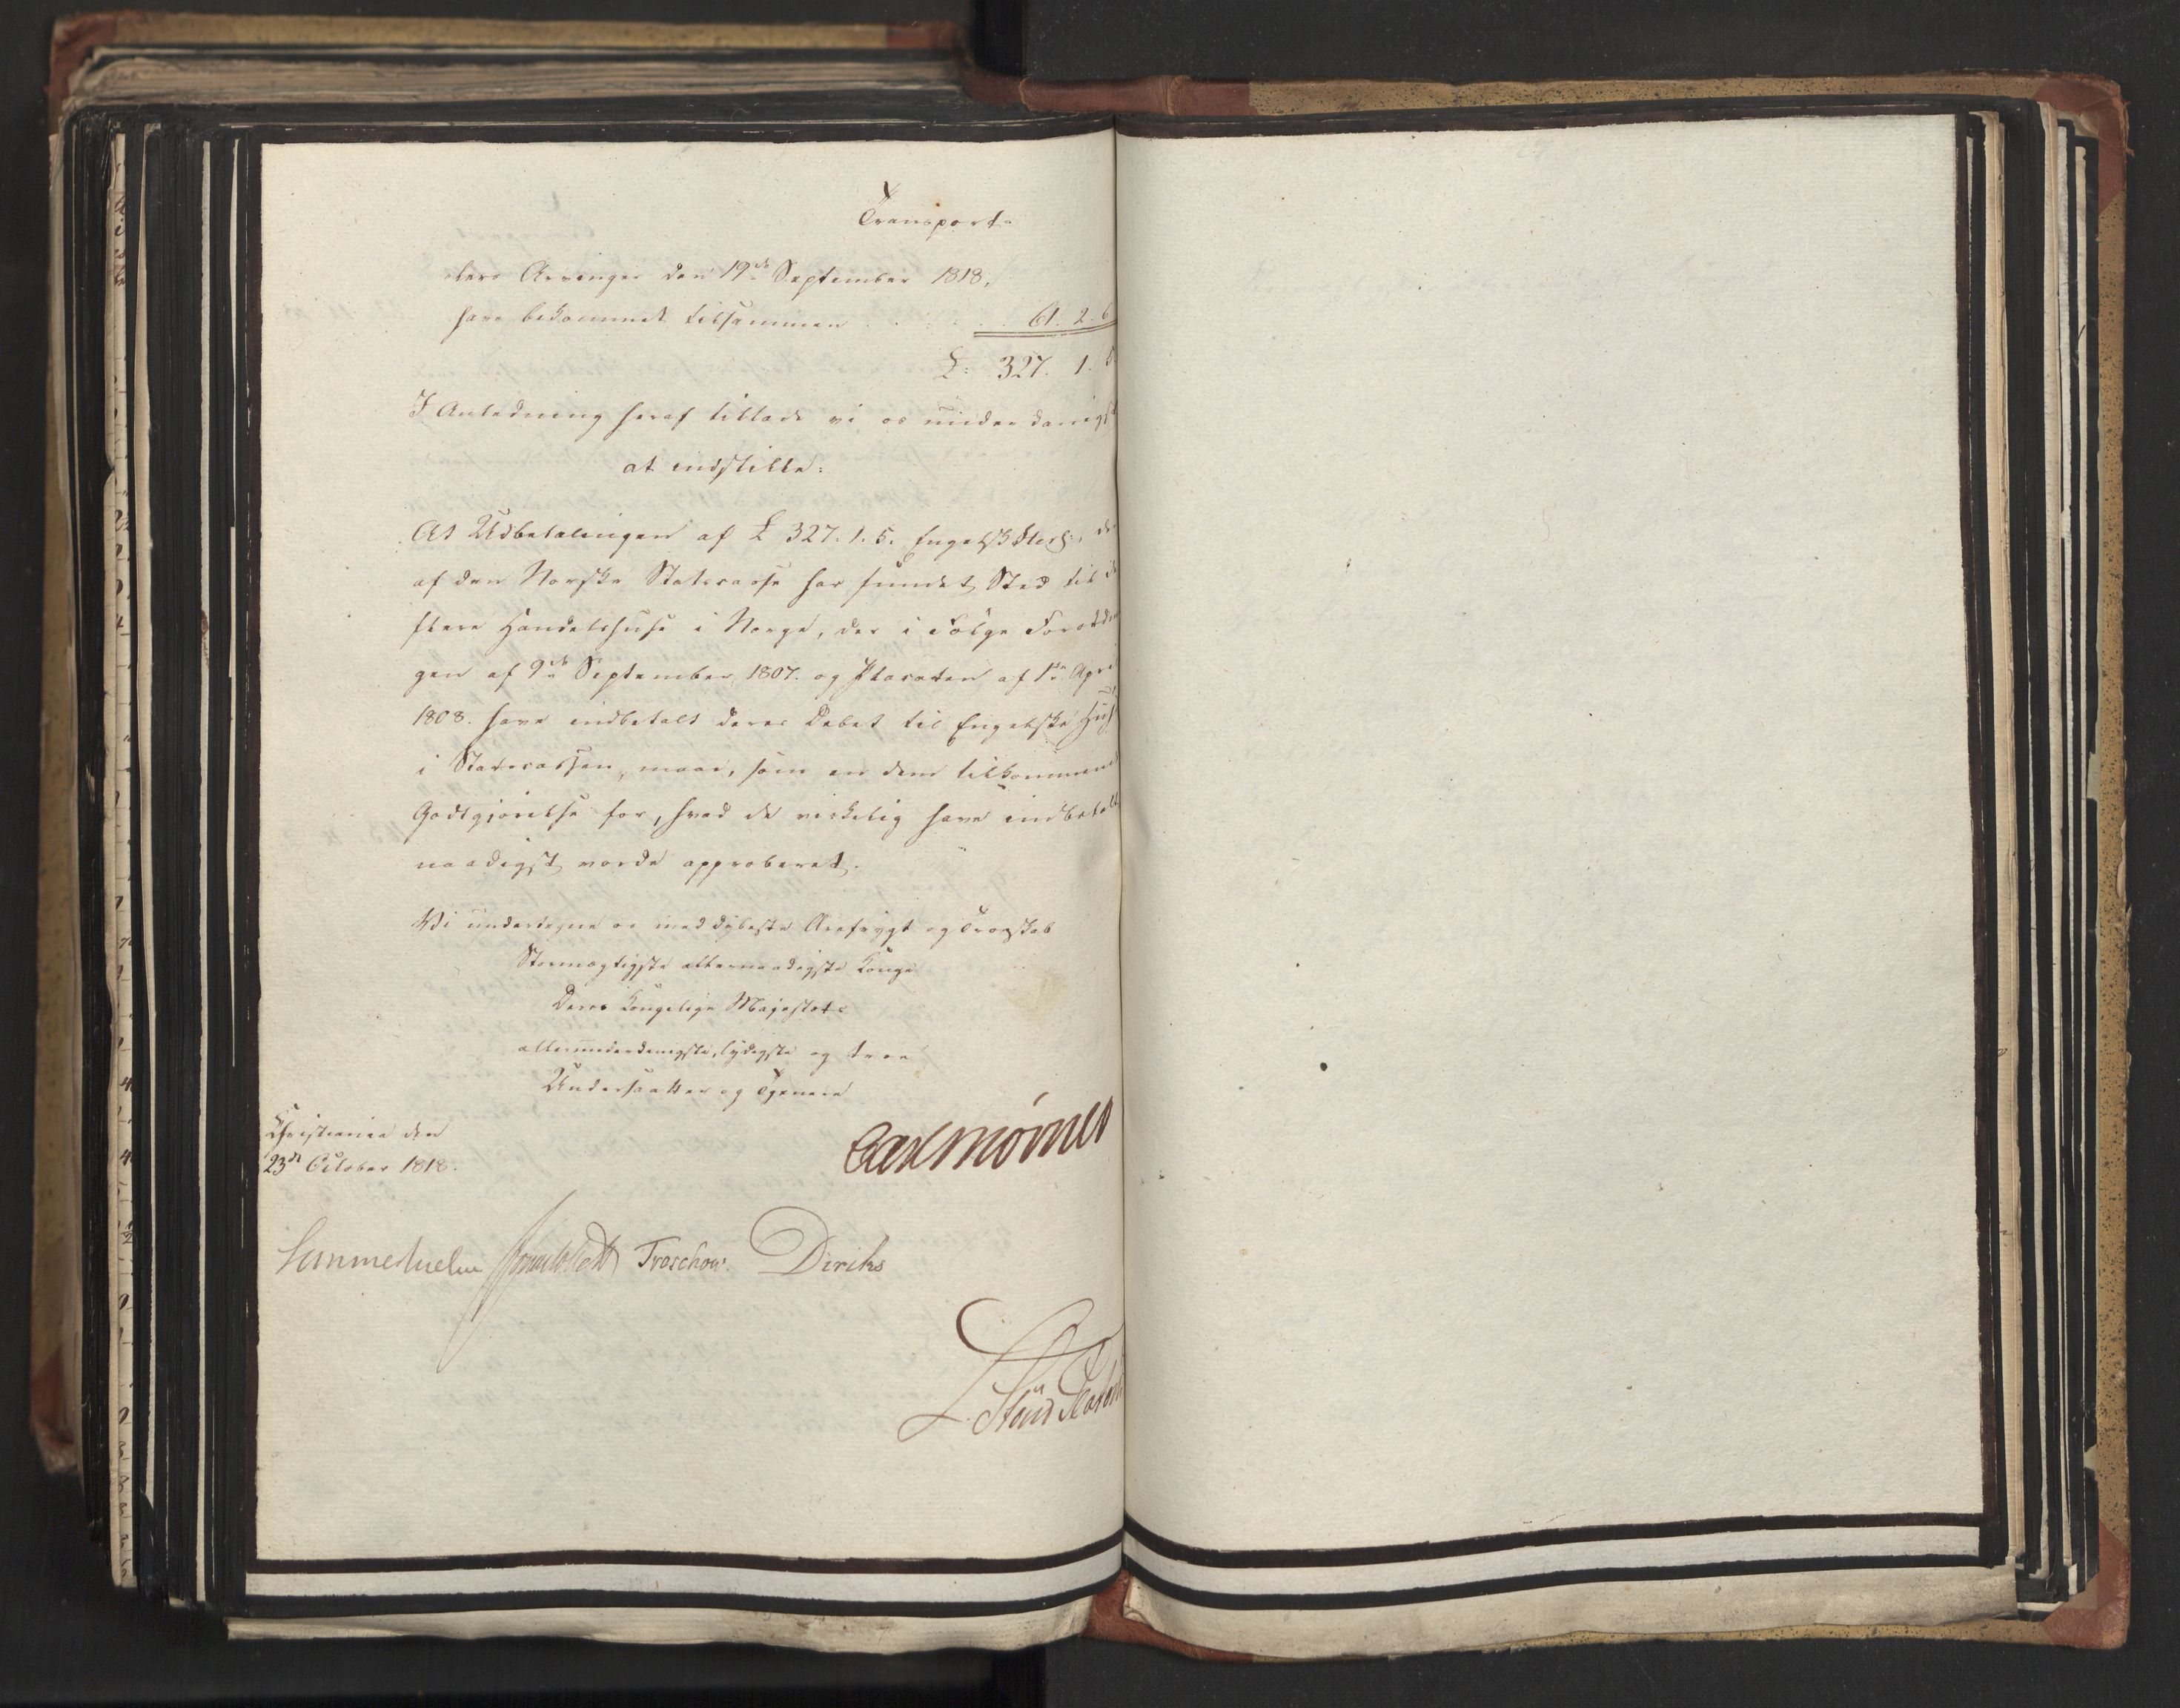 Transport.
lers Arvinger den 19de September 1818,
have bekommet tilsammen . . . . 61. 2. 6
£: 327. 1. 5
I Anledning heraf tillade vi os underdanigst
at indstille:
At Udbetalingen af £ 327. 1. 5. Engelsk Sterl:, der
af den Norske Statscasse har fundet Sted til de
flere Handelshuse i Norge, der i Følge Forordnin
gen af 9de September 1807. og Placaten af 1ste April
1808. have indbetalt deres Debet til Engelske Huse
i Statscassen, maae, som en dem tilkommende
Godtgjørelse for, hvad de virkelig have indbetalt
naadigst vorde approberet.
Vi undertegne os med dybeste Ærefrygt og Troskab
Stormægtigste allernaadigste Konge
Deres Kongelige Majestæts
allerunderdanigste, lydigste og troe
Undersaatter og Tjenere
Christiania den
23de October 1818.
Carl Mörner
Sommerhielm Treschow. Diriks
L.